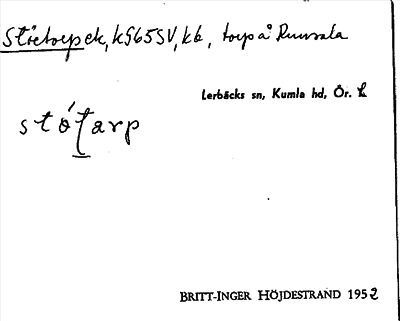 Störtorp ek, kS65SV, kb, torp å Runsala
Lerbäcks sn, Kumla hd, Ör. L
stó̱tarp
BRITT-INGER HÖJDESTRAND 1952